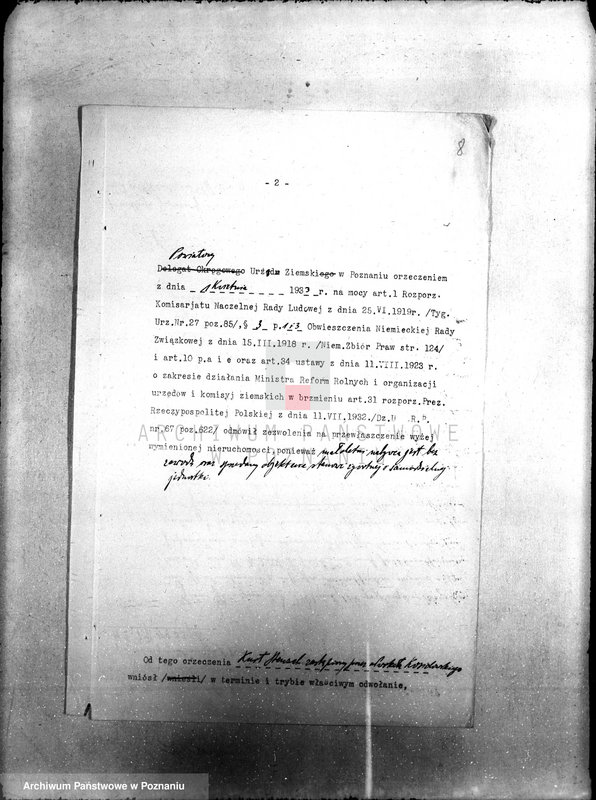 8
- 2 -
Powiatowy
Delegat Okręgowego Urząd Ziemskiego w Poznaniu orzeczeniem
z dnia kwietnia 1933 r. na mocy art.1 Rozporz.
Komisarjatu Naczelnej Rady Ludowej z dnia 25.VI.1919r. /Tyg.
Urz.Nr.27 poz.85/,§ 3 p. 1 i 3 Obwieszczenia Niemieckiej Rady
Związkowej z dnia 15.III.1918 r. /Niem.Zbiór Praw str. 124/
i art.10 p.a i e oraz art.34 ustawy z dnia 11.VIII.1923 r.
o zakresie działania Ministra Reform Rolnych i organizacji
urzędów i komisyj ziemskich w brzmieniu art.31 rozporz.Prez.
Rzeczypospolitej Polskiej z dnia 11.VII.1932./Dz.U .R.P.
nr.67 poz.622/ odmówił zezwolenia na przewłaszczenie wyżej
ARCHIWUM PAŃSTWOWE
wymienionej nieruchomości, ponieważ małoletni nabywca jest bez
W POZNANIU
zawodu oraz sprzedany objekt stanowi o samodzielnej
jednostki.
Od tego orzeczenia Kurt Hensel zastąpiony przez adwokata Kowalewskiego
wniósł /wnieśli/ w terminie i trybie właściwym odwołanie,
Archiwum Państwowe w Poznaniu